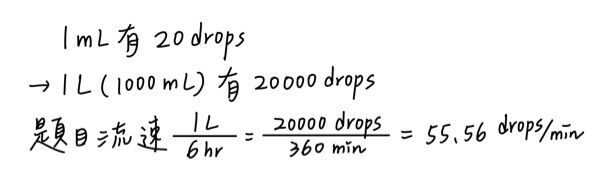 1mL 有 20 drops
→ 1L (1000 mL) 有 20000 drops
題目流速 1L/6hr = 20000 drops/360 min = 55.56 drops/min